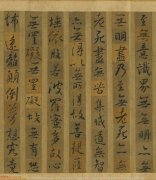 至無意識界無無明亦
無無明盡乃至無老死亦
無老死盡無苦集滅道
無智亦無得以無所得故菩提薩
埵依般若波羅蜜多故心
無罣礙無罣礙故無有恐
怖遠離顛倒夢想究竟